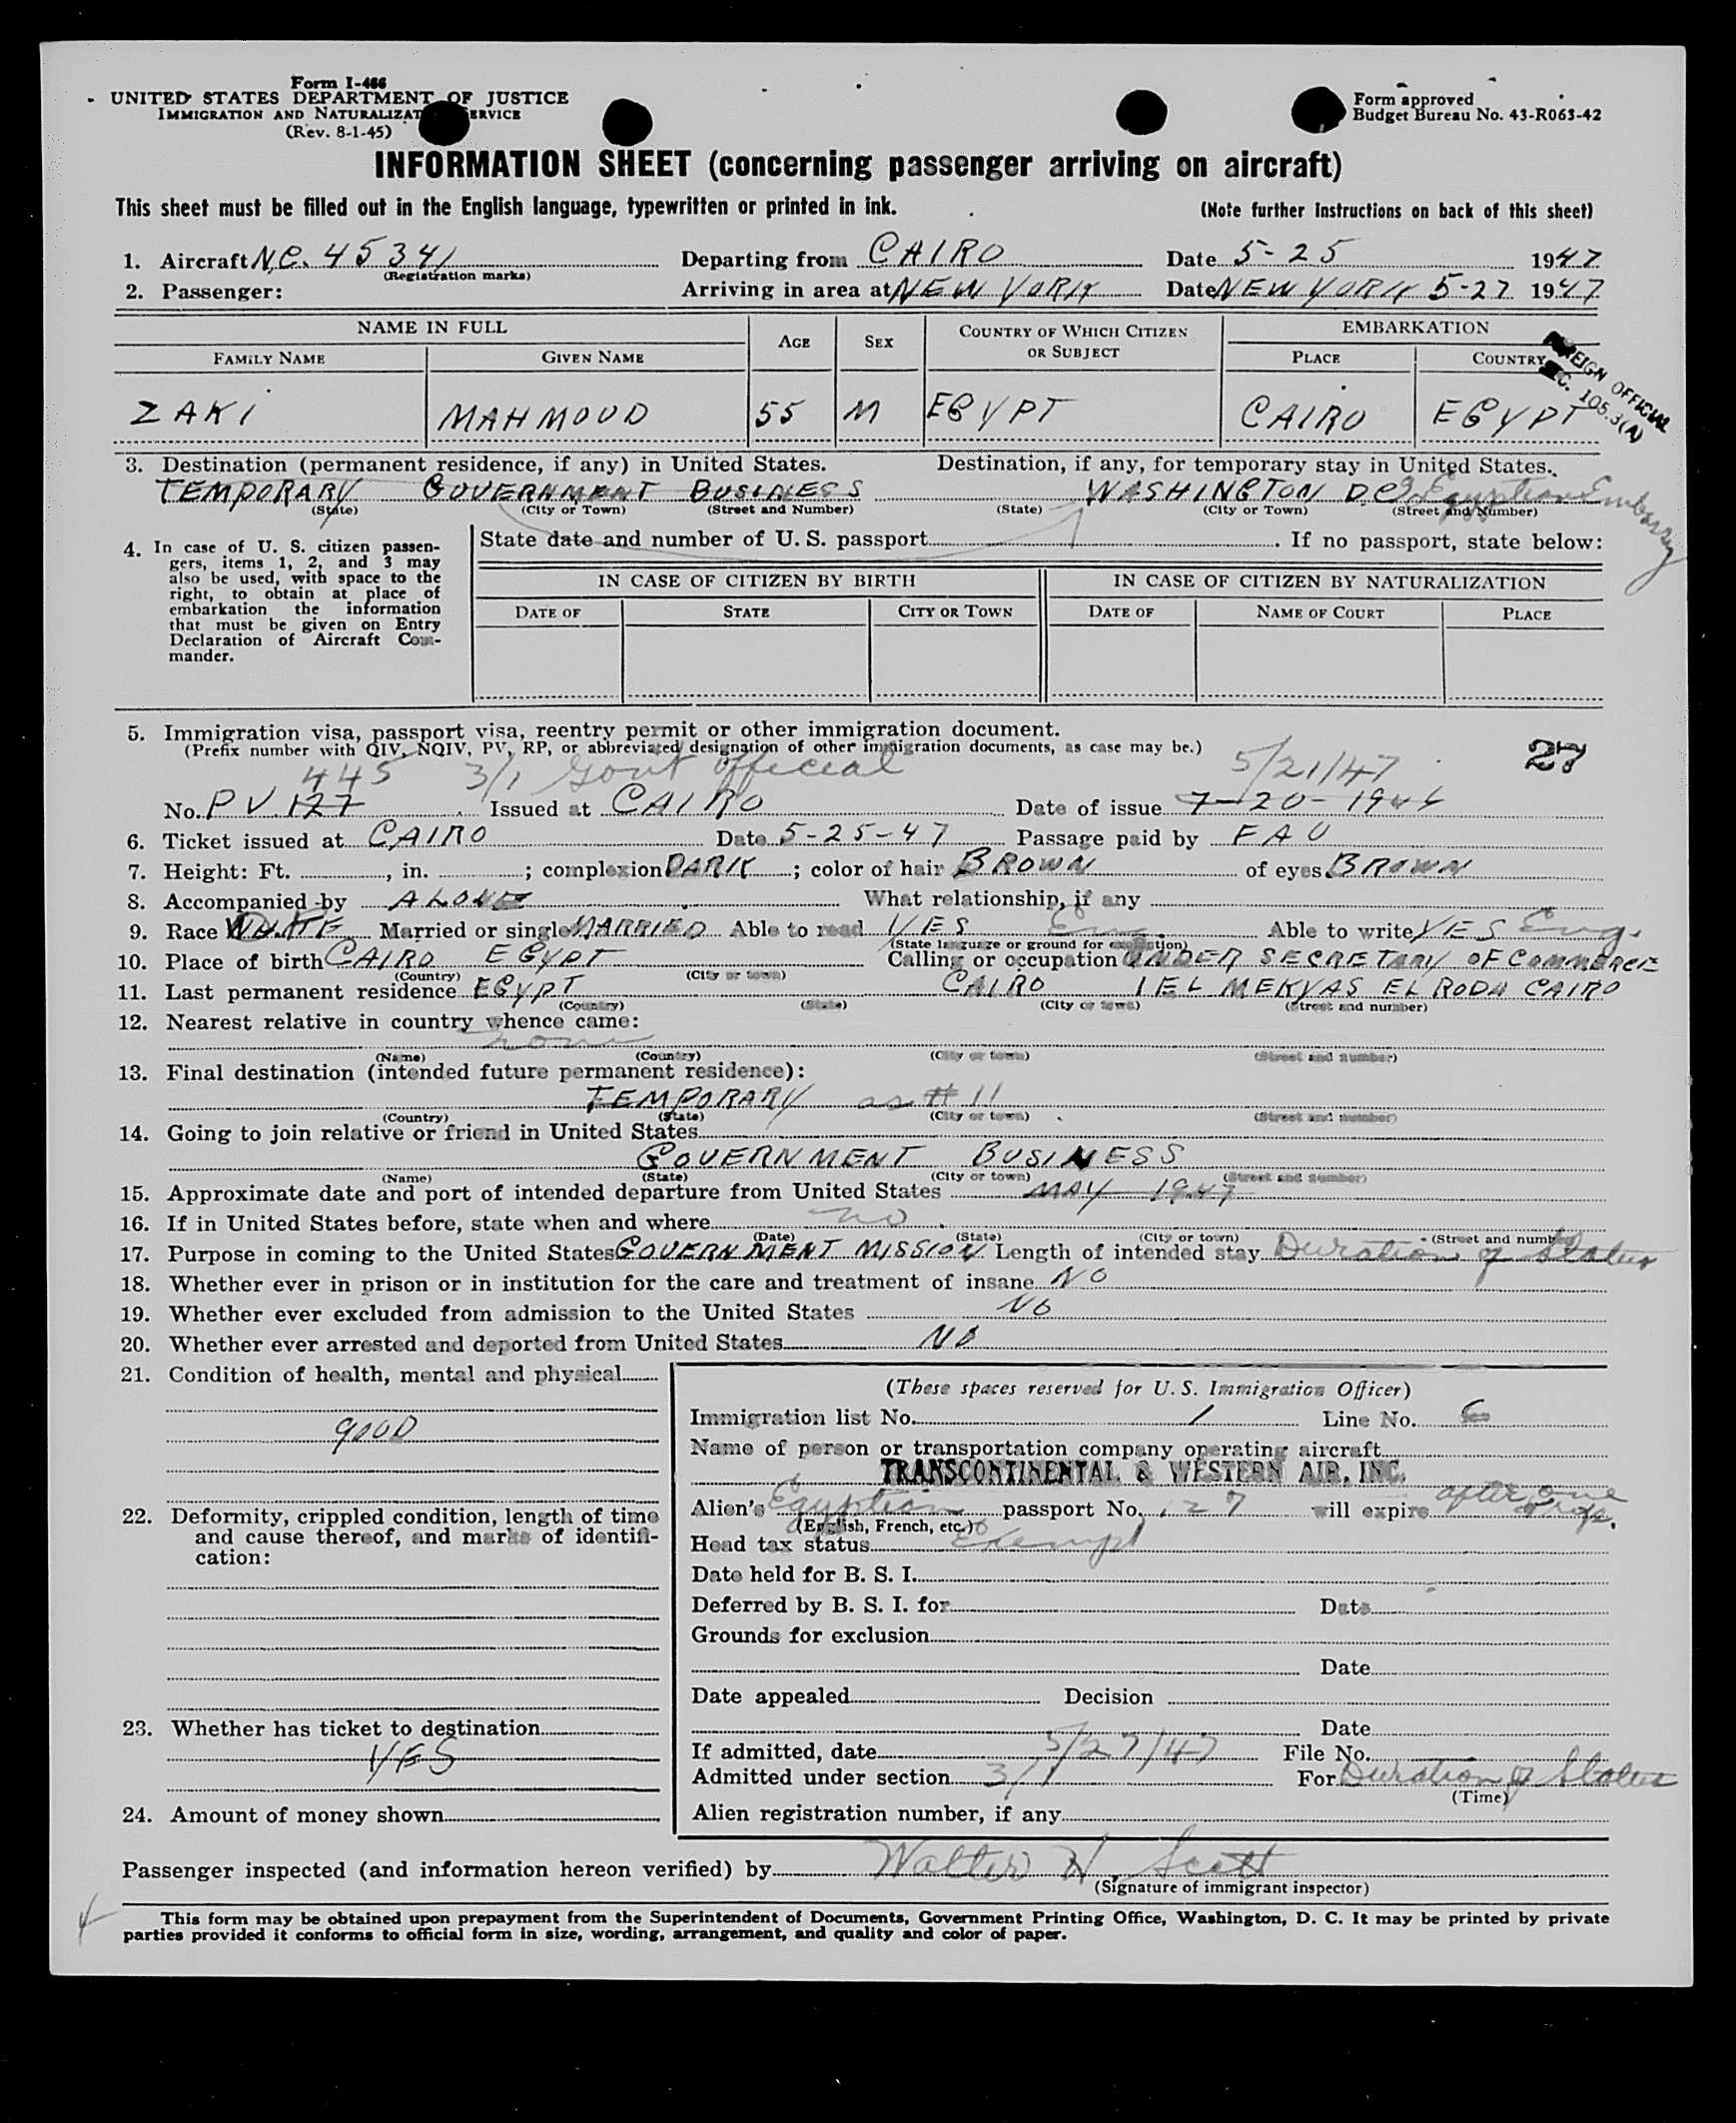 Form I-466
UNITED STATES DEPARTMENT OF JUSTICE
IMMIGRATION AND NATURALIZAT SERVICE
(Rev. 8-1-45)
Form approved
Budget Bureau No. 43-R063-42
INFORMATION SHEET (concerning passenger arriving on aircraft)
This sheet must be filled out in the English language, typewritten or printed in ink. (Note further instructions on back of this sheet)
1. Aircraft N.C. 45341 Departing from CAIRO Date 5-25 1947
(Registration marks)
2. Passenger: Arriving in area at NEW YORK Date NEW YORK 5-27 1947
NAME IN FULL AGE SEX COUNTRY OF WHICH CITIZEN OR SUBJECT EMBARKATION
FAMILY NAME GIVEN NAME PLACE COUNTRY
FOREIGN OFFICIAL
SEC. 105.3(A)
ZAKI MAHMOUD 55 M EGYPT CAIRO EGYPT
3. Destination (permanent residence, if any) in United States. Destination, if any, for temporary stay in United States.
TEMPORARY GOVERNMENT BUSINESS WASHINGTON D.C. Egyptian Embassy
(State) (City or Town) (Street and Number) (State) (City or Town) (Street and Number)
4. In case of U. S. citizen passengers, items 1, 2, and 3 may also be used, with space to the right, to obtain at place of embarkation the information that must be given on Entry Declaration of Aircraft Commander.
State date and number of U. S. passport . If no passport, state below:
IN CASE OF CITIZEN BY BIRTH IN CASE OF CITIZEN BY NATURALIZATION
DATE OF STATE CITY OR TOWN DATE OF NAME OF COURT PLACE
5. Immigration visa, passport visa, reentry permit or other immigration document.
(Prefix number with QIV, NQIV, PV, RP, or abbreviated designation of other immigration documents, as case may be.)
445 3/1 Govt official 5/21/47 27
No. PV. 127 Issued at CAIRO Date of issue 7-20-1946
6. Ticket issued at CAIRO Date 5-25-47 Passage paid by FAU
7. Height: Ft. , in. ; complexion DARK ; color of hair BROWN of eyes BROWN
8. Accompanied by ALONE What relationship, if any
9. Race WHITE Married or single MARRIED Able to read YES Eng. Able to write YES Eng.
(State language or ground for exemption)
10. Place of birth CAIRO EGYPT Calling or occupation UNDER SECRETARY OF COMMERCE
(Country) (City or town)
11. Last permanent residence EGYPT CAIRO 1 EL MEKYAS EL RODA CAIRO
(Country) (State) (City or town) (Street and number)
12. Nearest relative in country whence came:
none
(Name) (Country) (City or town) (Street and number)
13. Final destination (intended future permanent residence):
TEMPORARY as # 11
(Country) (State) (City or town) (Street and number)
14. Going to join relative or friend in United States
GOVERNMENT BUSINESS
(Name) (State) (City or town) (Street and number)
15. Approximate date and port of intended departure from United States MAY 1947
16. If in United States before, state when and where no
(Date) (State) (City or town) (Street and number)
17. Purpose in coming to the United States GOVERNMENT MISSION Length of intended stay Duration of Status
18. Whether ever in prison or in institution for the care and treatment of insane NO
19. Whether ever excluded from admission to the United States NO
20. Whether ever arrested and deported from United States NO
21. Condition of health, mental and physical
GOOD
22. Deformity, crippled condition, length of time and cause thereof, and marks of identification:
23. Whether has ticket to destination
YES
24. Amount of money shown
(These spaces reserved for U. S. Immigration Officer)
Immigration list No. 1 Line No. 6
Name of person or transportation company operating aircraft
TRANSCONTINENTAL & WESTERN AIR, INC.
Alien's Egyptian passport No. 127 will expire after one
(English, French, etc.)
Head tax status Exempt
Date held for B. S. I.
Deferred by B. S. I. for Date
Grounds for exclusion
Date
Date appealed Decision
Date
If admitted, date 5/27/47 File No.
Admitted under section 3/1 For Duration of Status
(Time)
Alien registration number, if any
Passenger inspected (and information hereon verified) by Walter H. Scott
(Signature of immigrant inspector)
This form may be obtained upon prepayment from the Superintendent of Documents, Government Printing Office, Washington, D. C. It may be printed by private
parties provided it conforms to official form in size, wording, arrangement, and quality and color of paper.